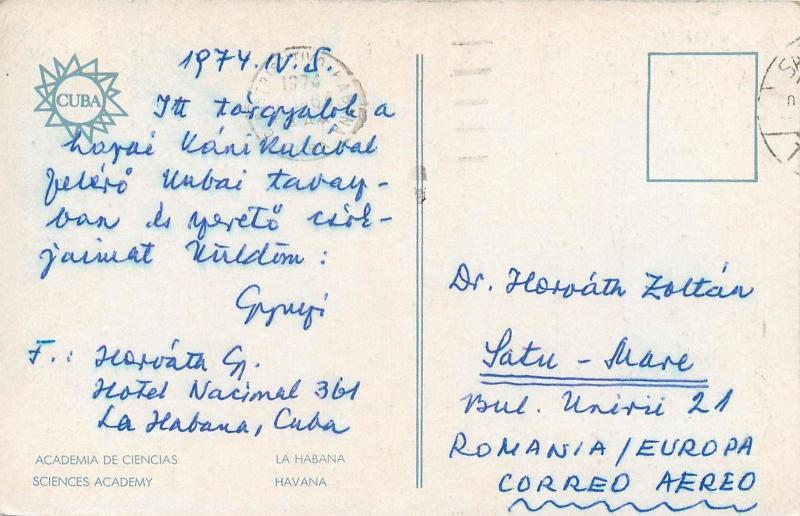 1974.IV.5.
CUBA
Itt tárgyalok a
hazai kánikulával
felérő kubai tavasz-
ban és szerető csók-
jaimat küldöm:
Gyuszi
F.: Horváth Gy.
Hotel Nacional 361
La Habana, Cuba
ACADEMIA DE CIENCIAS LA HABANA
SCIENCES ACADEMY HAVANA
Dr. Horváth Zoltán
Satu - Mare
Bul. Unirii 21
ROMANIA/EUROPA
CORREO AEREO